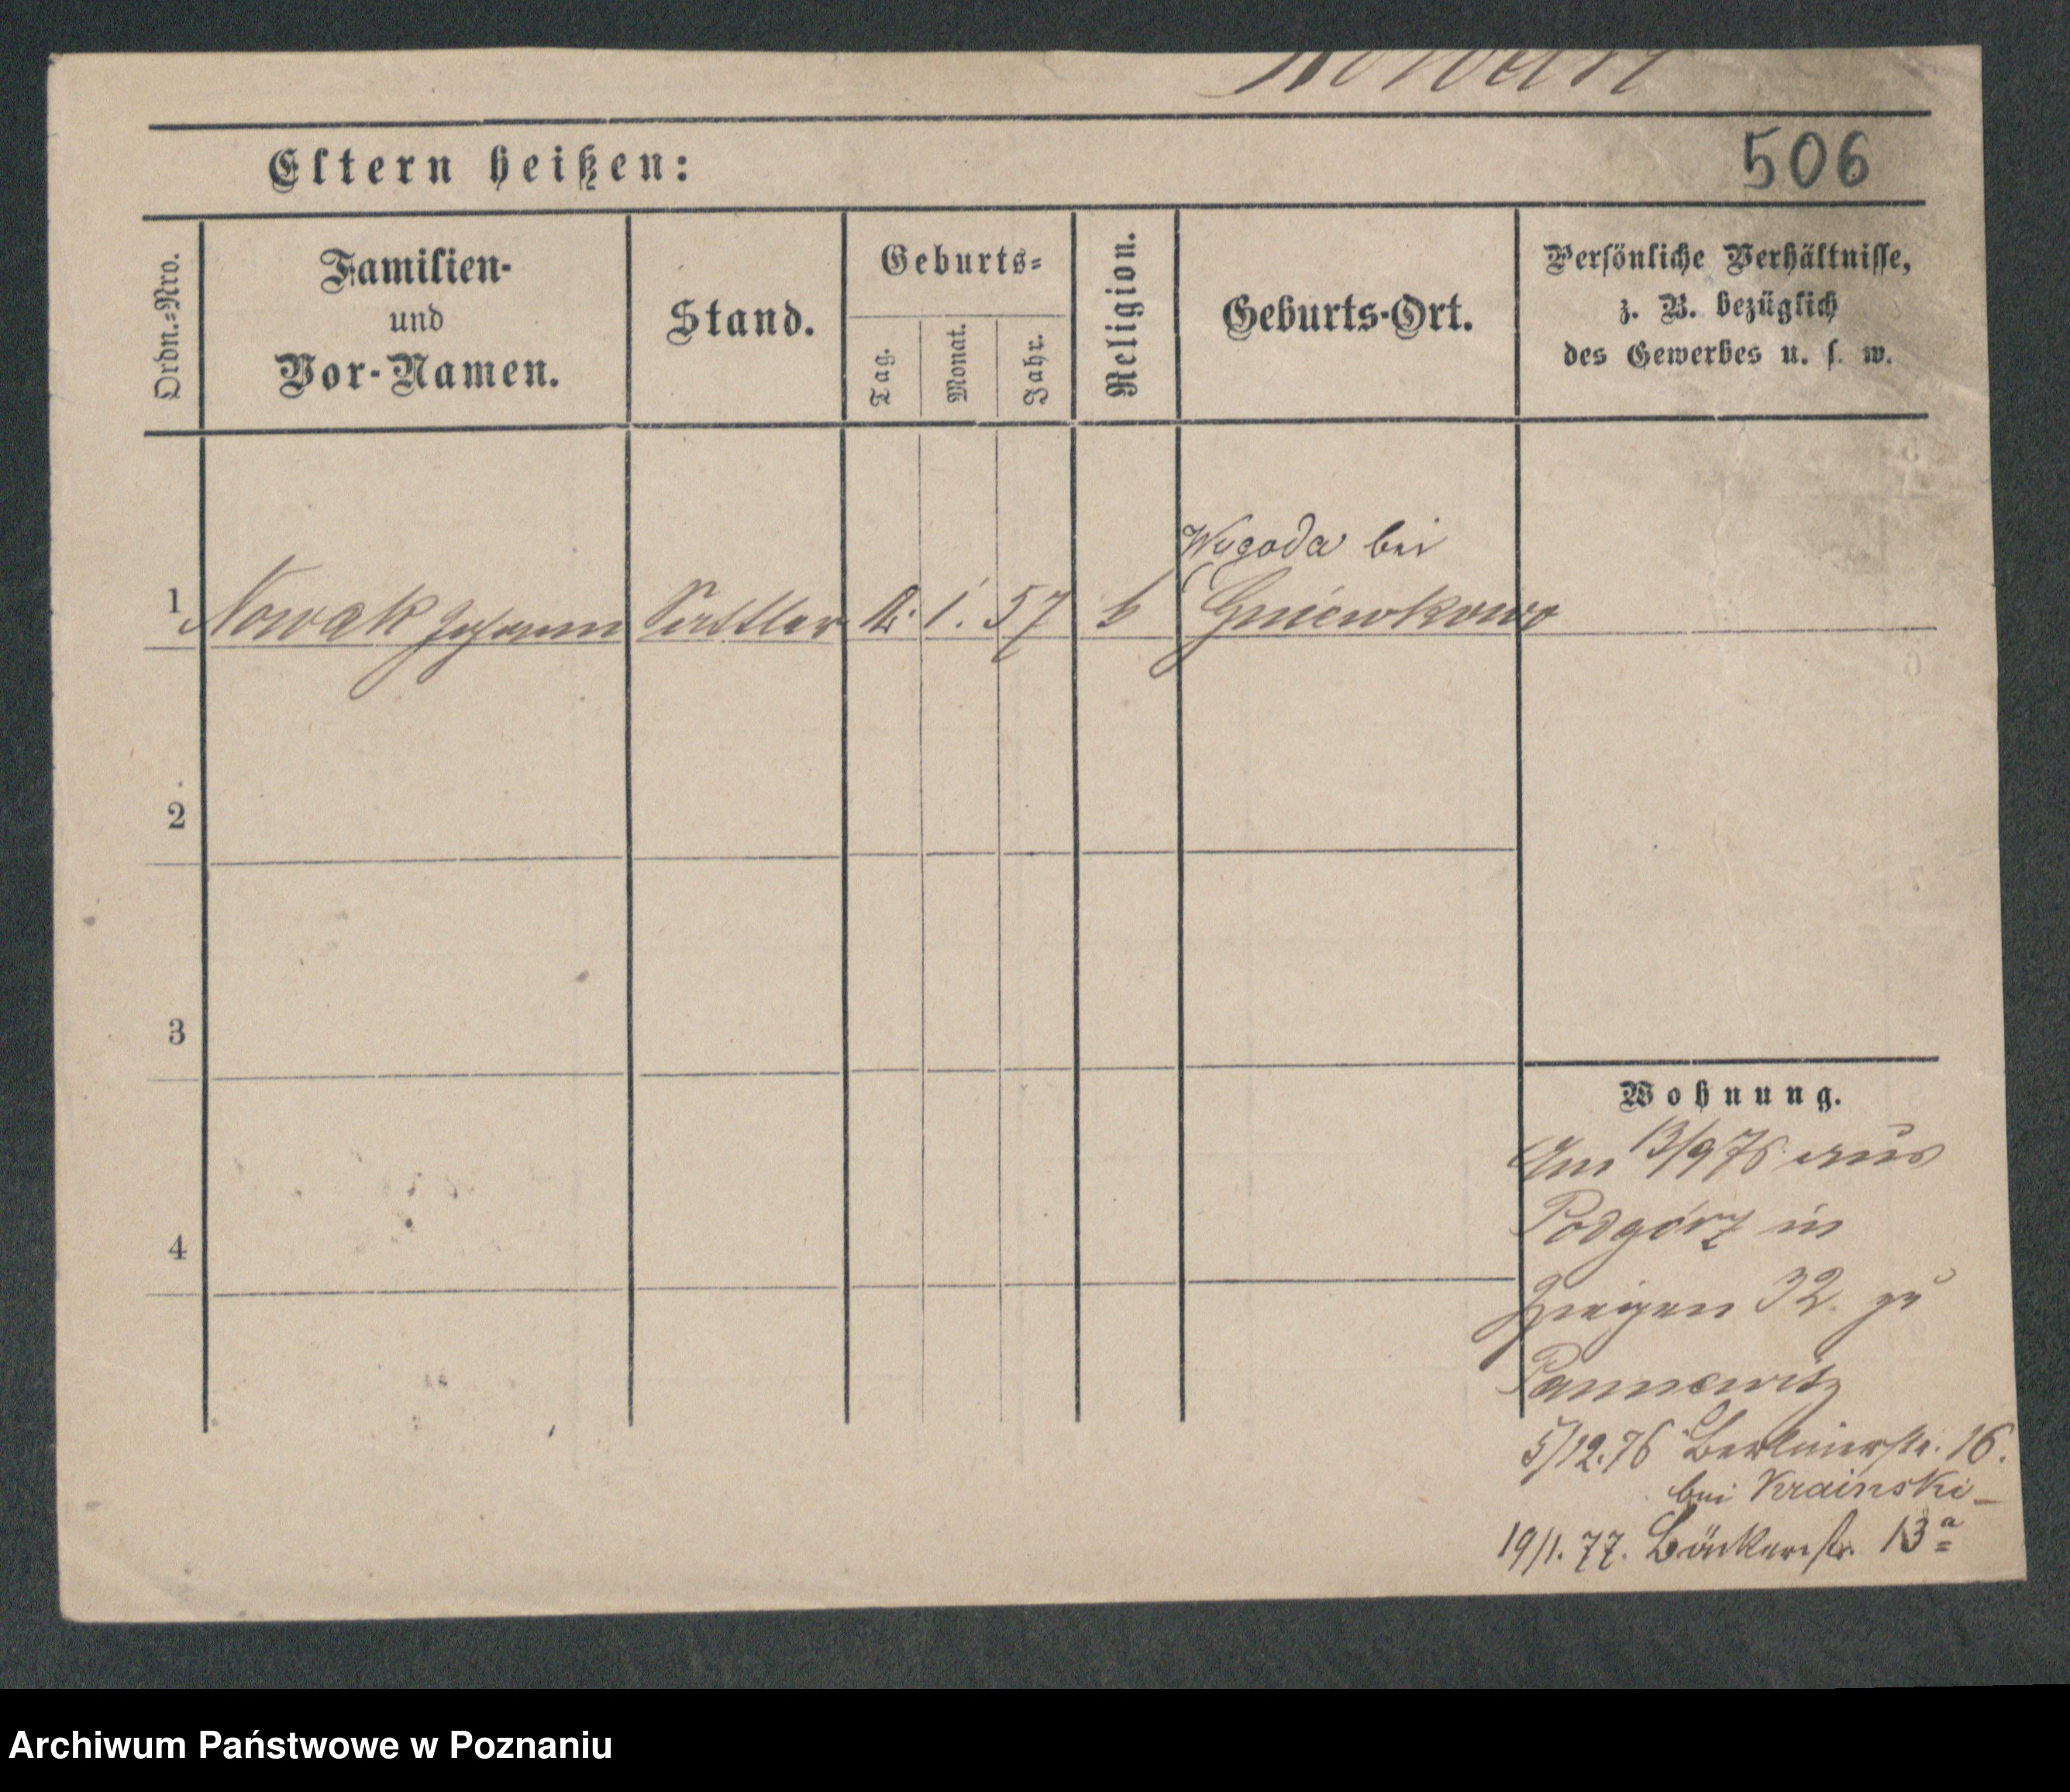 Nowak
Eltern heißen:
506
Ordn.=Nro.
Familien-
und
Vor-Namen.
Stand.
Geburts=
Tag.
Monat.
Jahr.
Religion.
Geburts-Ort.
Persönliche Verhältnisse,
z. B. bezüglich
des Gewerbes u. s. w.
Wygoda bei
1 Nowak Johann Sattler 1. 57 k Gniewkowo
2
3
4
Wohnung.
Am 13/9 76 aus
Podgórz in
32. zu
Pannewitz
5/12.76 Berlinerstr. 16.
bei Krainski
19/1. 77. Bäckerstr. 13a
Archiwum Państwowe w Poznaniu